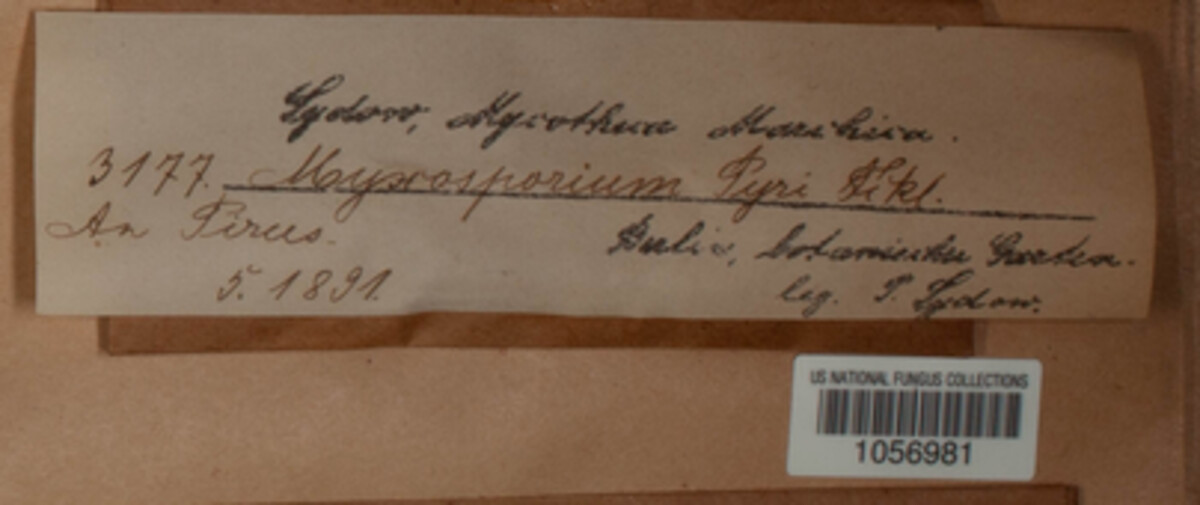 Sydow, Mycotheca Marchica.
3177. Myxosporium Pyri Fckl.
An Pirus.
Berlin, botanischer Garten.
5. 1891.
leg. P. Sydow.
US NATIONAL FUNGUS COLLECTIONS
1056981